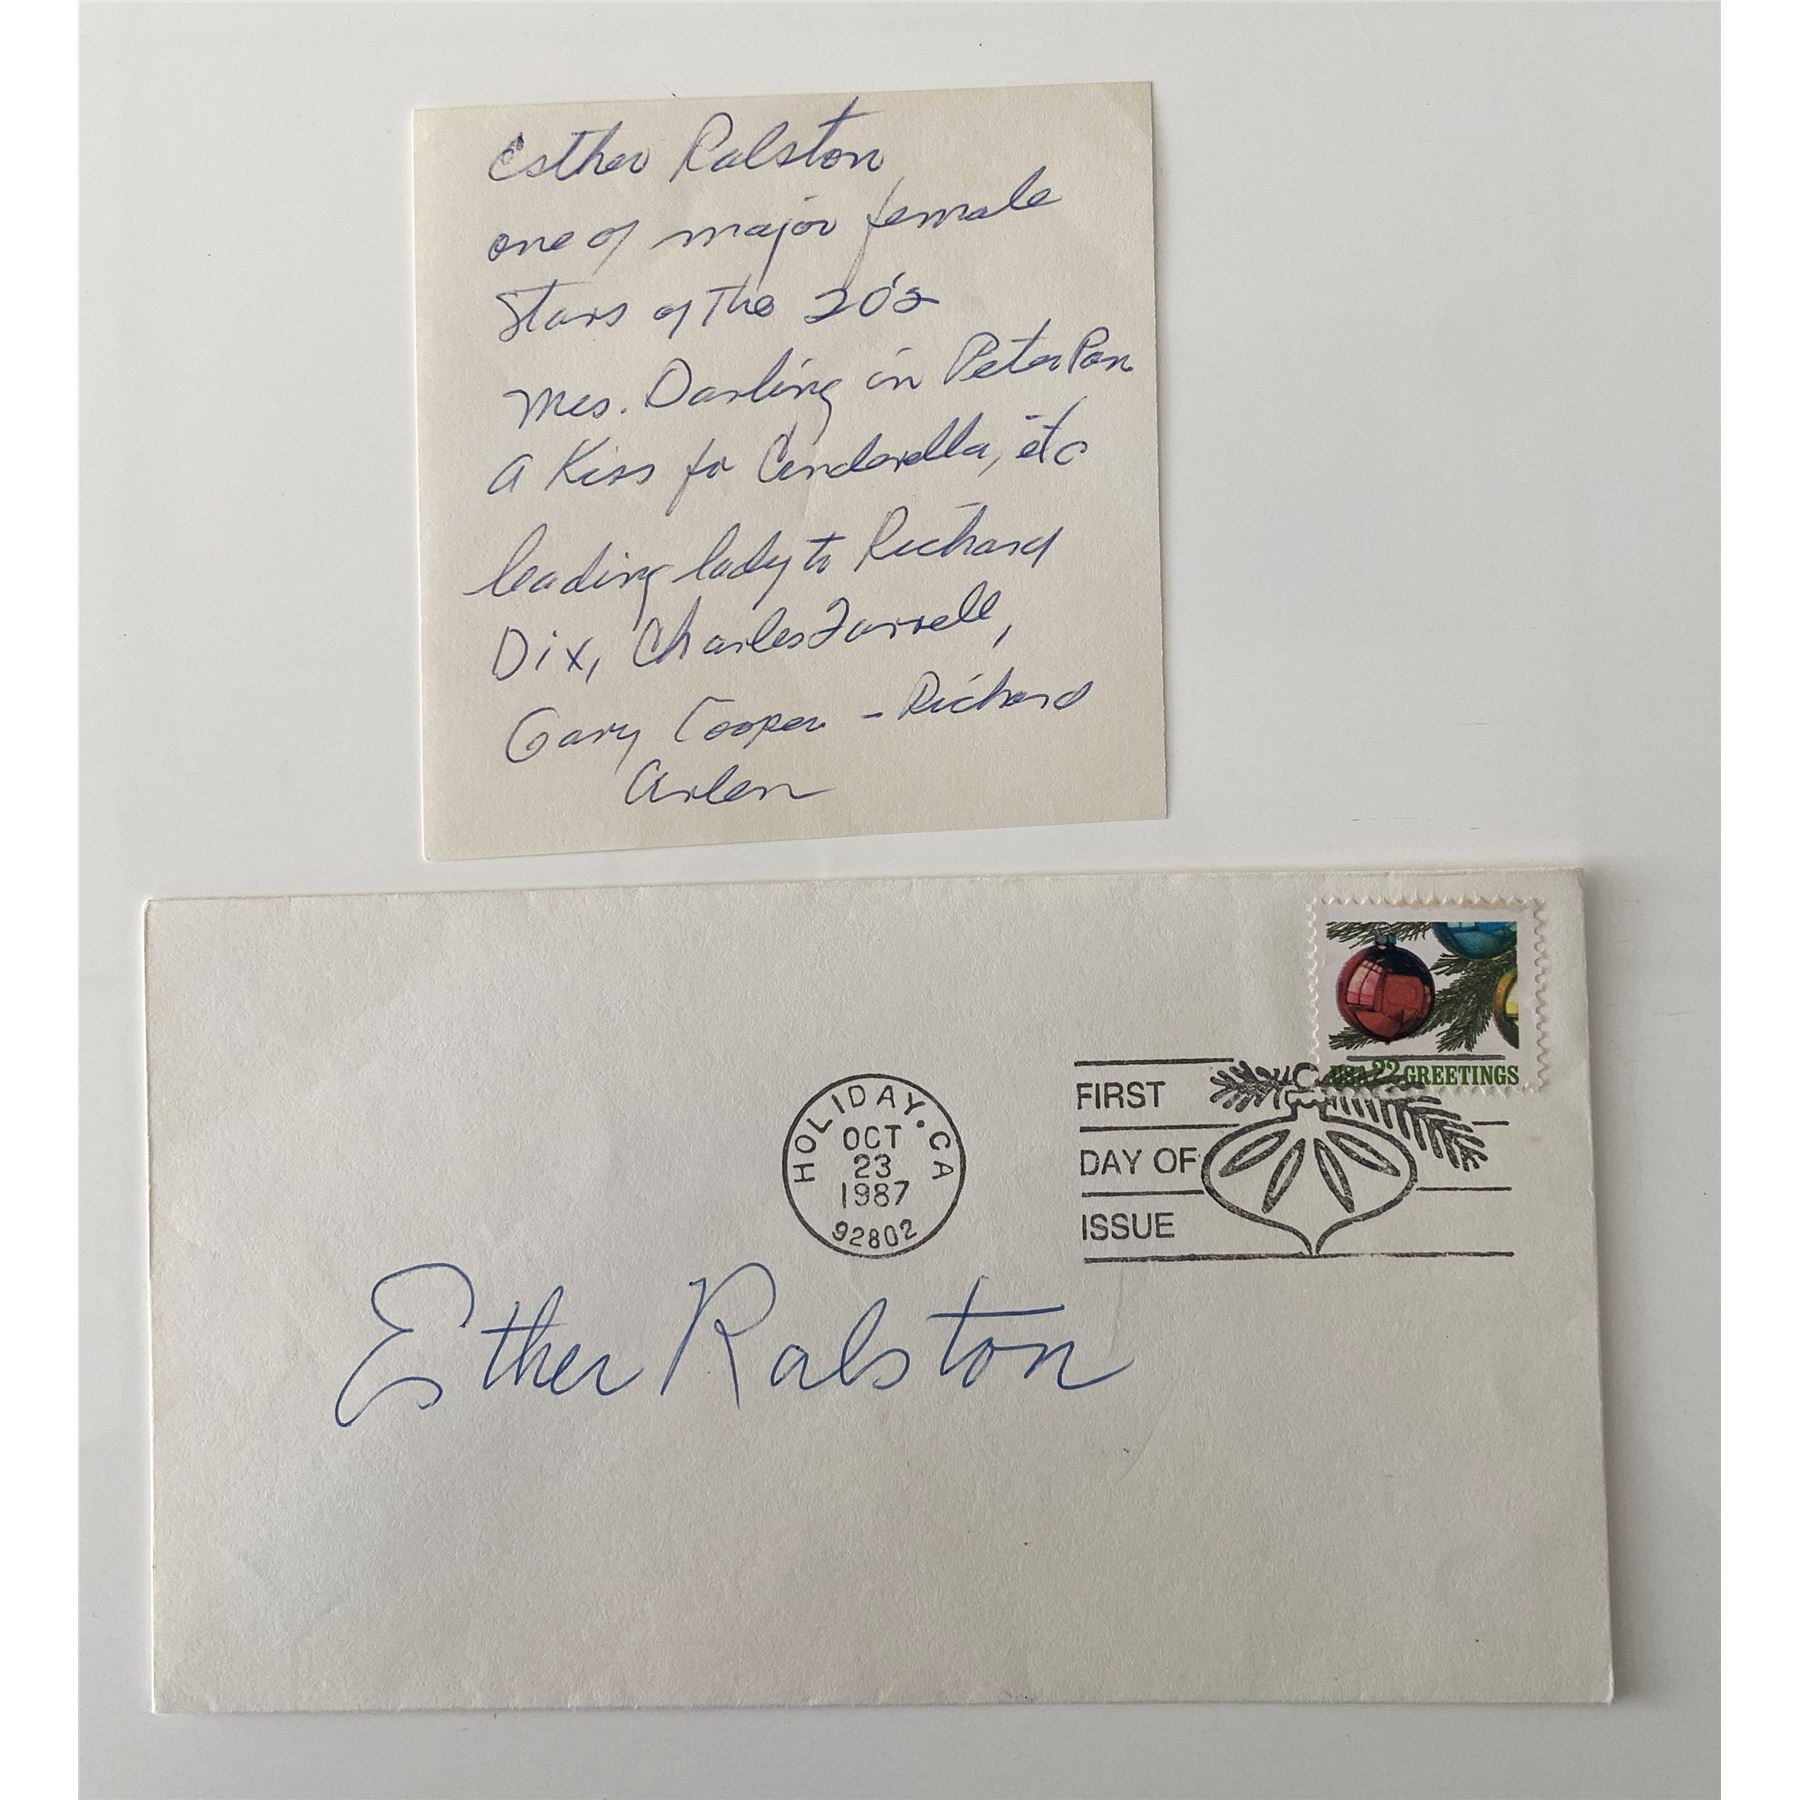 Esther Ralston
one of major female
Stars of The 20's
Mrs. Darling in Peter Pan
A Kiss for Cinderella, etc
leading lady to Richard
Dix, Charles Farrell,
Gary Cooper - Richard
Arlen
USA 22 GREETINGS
HOLIDAY • CA
OCT
23
1987
92802
FIRST
DAY OF
ISSUE
Esther Ralston